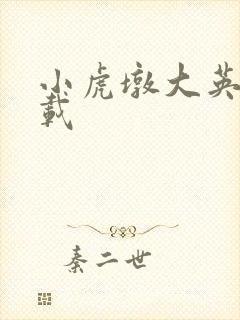 小虎墩大英
載
秦二世